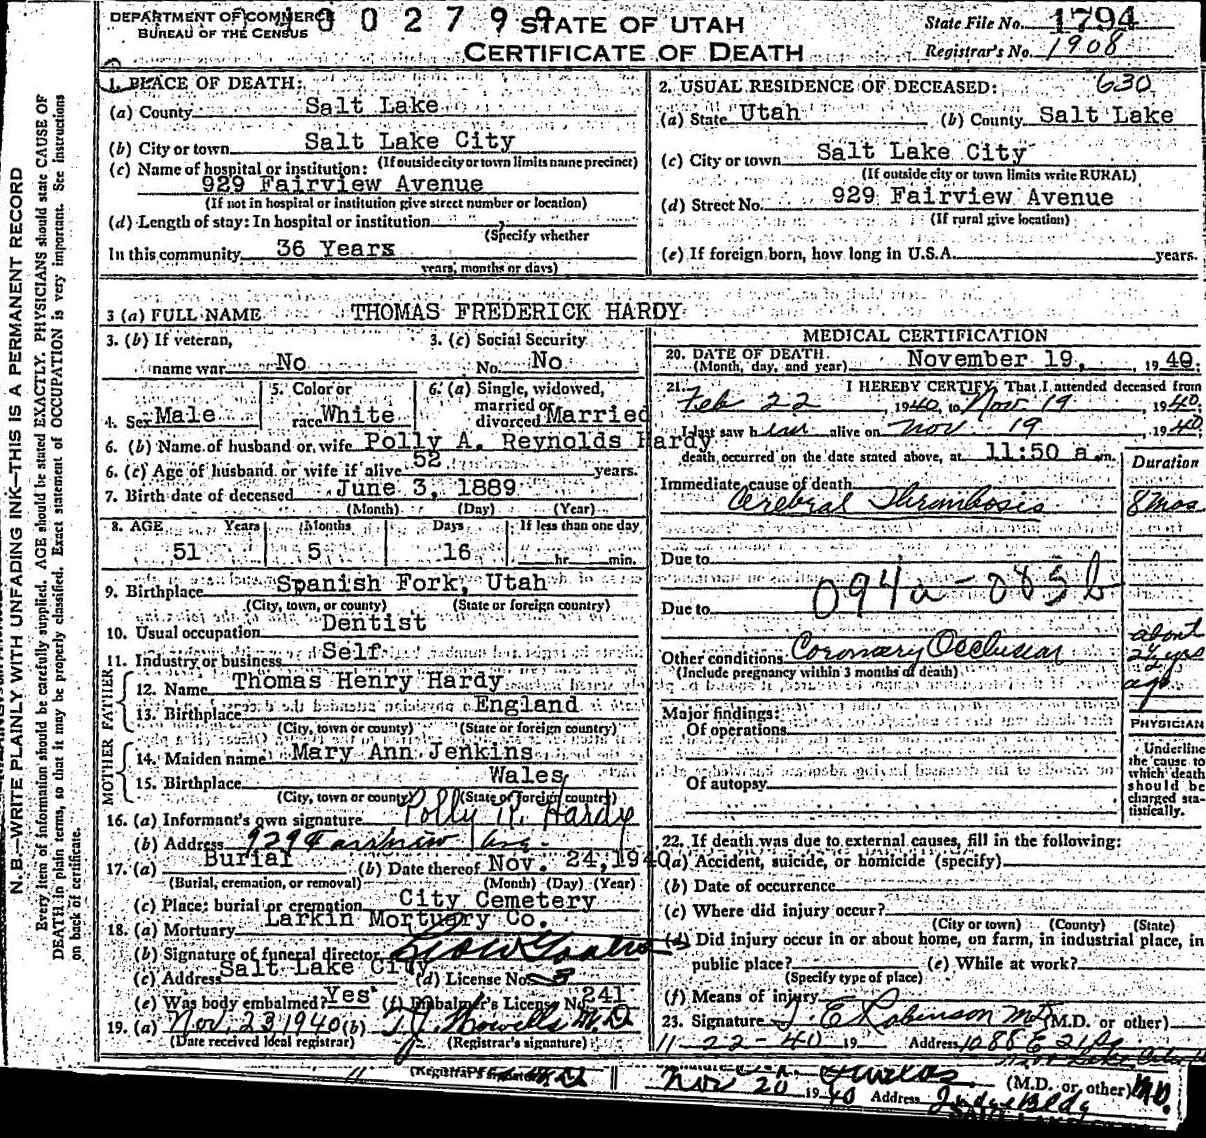 DEPARTMENT OF COMMERCE
BUREAU OF THE CENSUS
0 0 2 7 9 9
STATE OF UTAH
CERTIFICATE OF DEATH
State File No. 1794
Registrar's No. 1908
N. B.—WRITE PLAINLY WITH UNFADING INK—THIS IS A PERMANENT RECORD
Every item of information should be carefully supplied. AGE should be stated EXACTLY. PHYSICIANS should state CAUSE OF
DEATH in plain terms, so that it may be properly classified. Exact statement of OCCUPATION is very important. See instructions
on back of certificate.
1. PLACE OF DEATH:
(a) County Salt Lake
(b) City or town Salt Lake City
(If outside city or town limits name precinct)
(c) Name of hospital or institution:
929 Fairview Avenue
(If not in hospital or institution give street number or location)
(d) Length of stay: In hospital or institution
(Specify whether
In this community 36 Years
years, months or days)
630
2. USUAL RESIDENCE OF DECEASED:
(a) State Utah (b) County Salt Lake
(c) City or town Salt Lake City
(If outside city or town limits write RURAL)
(d) Street No. 929 Fairview Avenue
(If rural give location)
(e) If foreign born, how long in U.S.A. years.
3 (a) FULL NAME THOMAS FREDERICK HARDY
3. (b) If veteran, name war No
3. (c) Social Security No. No
4. Sex Male
5. Color or race White
6. (a) Single, widowed, married or divorced Married
6. (b) Name of husband or wife Polly A. Reynolds Hardy
6. (c) Age of husband or wife if alive 52 years.
7. Birth date of deceased June 3, 1889
(Month) (Day) (Year)
8. AGE Years Months Days If less than one day
51 5 16 hr. min.
9. Birthplace Spanish Fork, Utah
(City, town, or county) (State or foreign country)
10. Usual occupation Dentist
11. Industry or business Self
FATHER
12. Name Thomas Henry Hardy
13. Birthplace England
(City, town or county) (State or foreign country)
MOTHER
14. Maiden name Mary Ann Jenkins
15. Birthplace Wales
(City, town or county) (State or foreign country)
16. (a) Informant's own signature Polly R. Hardy
(b) Address 929 Fairview Ave.
17. (a) Burial (b) Date thereof Nov. 24, 1940
(Burial, cremation, or removal) (Month) (Day) (Year)
(c) Place: burial or cremation City Cemetery
18. (a) Mortuary Larkin Mortuary Co.
(b) Signature of funeral director
(c) Address Salt Lake City (d) License No. 3
(e) Was body embalmed? Yes (f) Embalmer's License No. 241
19. (a) Nov. 23 1940 (b) T. J. Howells M.D.
(Date received local registrar) (Registrar's signature)
MEDICAL CERTIFICATION
20. DATE OF DEATH November 19, 1940.
(Month, day, and year)
21. I HEREBY CERTIFY, That I attended deceased from
Feb 22, 1940, to Nov. 19 1940.
I last saw him alive on Nov. 19, 1940
death occurred on the date stated above, at 11:50 a.m.
Duration
Immediate cause of death
Cerebral Thrombosis 8 mos
Due to
094a-083b
Due to
Other conditions Coronary Occlusion about 2½ yrs ago
(Include pregnancy within 3 months of death)
Major findings:
Of operations
Of autopsy
PHYSICIAN
Underline
the cause to
which death
should be
charged sta-
tistically.
22. If death was due to external causes, fill in the following:
(a) Accident, suicide, or homicide (specify)
(b) Date of occurrence
(c) Where did injury occur?
(City or town) (County) (State)
(d) Did injury occur in or about home, on farm, in industrial place, in
public place? (e) While at work?
(Specify type of place)
(f) Means of injury
23. Signature J. E. Robinson MD (M.D. or other)
11-22-40 19 Address 1088 E 21 So
Salt Lake City U
(Registrar's
Nov 20 1940 Address Judge Bldg
(M.D. or other) M.D.